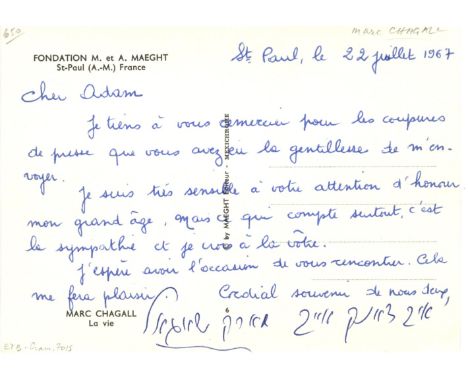 650
Marc CHAGALL
FONDATION M. et A. MAEGHT
St-Paul (A.-M.) France
St. Paul, le 22 juillet 1967
Cher Adam
Je tiens à vous remercier pour les coupures
de presse que vous avez eu la gentillesse de m'en-
voyer.
Je suis très sensible à votre attention d'honorer
mon grand âge, mais ce qui compte surtout, c'est
la sympathie et je crois à la vôtre.
J'espère avoir l'occasion de vous rencontrer. Cela
me fera plaisir. Cordial souvenir de nous deux,
by MAEGHT Editeur
MARC CHAGALL
La vie
6
איך דאנק אייך מארק שאגאל